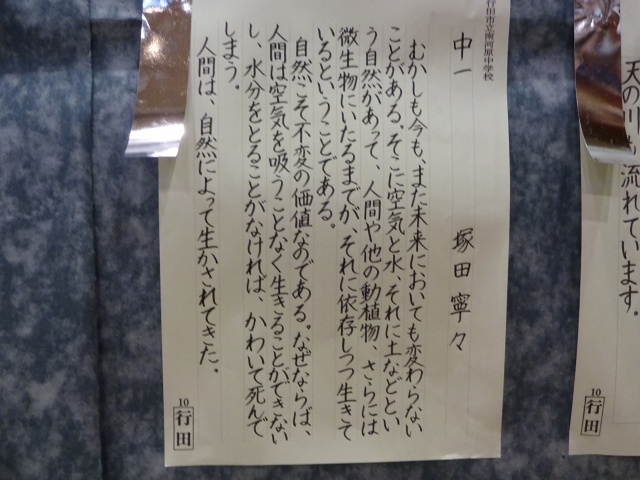 行田市立南河原中学校
中一 塚田寧々
むかしも今も、また未来においても変わらない
ことがある。そこに空気と水、それに土などとい
う自然があって、人間や他の動植物、さらには
微生物にいたるまでが、それに依存しつつ生きて
いるということである。
自然こそ不変の価値なのである。なぜならば、
人間は空気を吸うことなく生きることができない
し、水分をとることがなければ、かわいて死んで
しまう。
人間は、自然によって生かされてきた。
10
行田
天の川も流れています。
10
行田